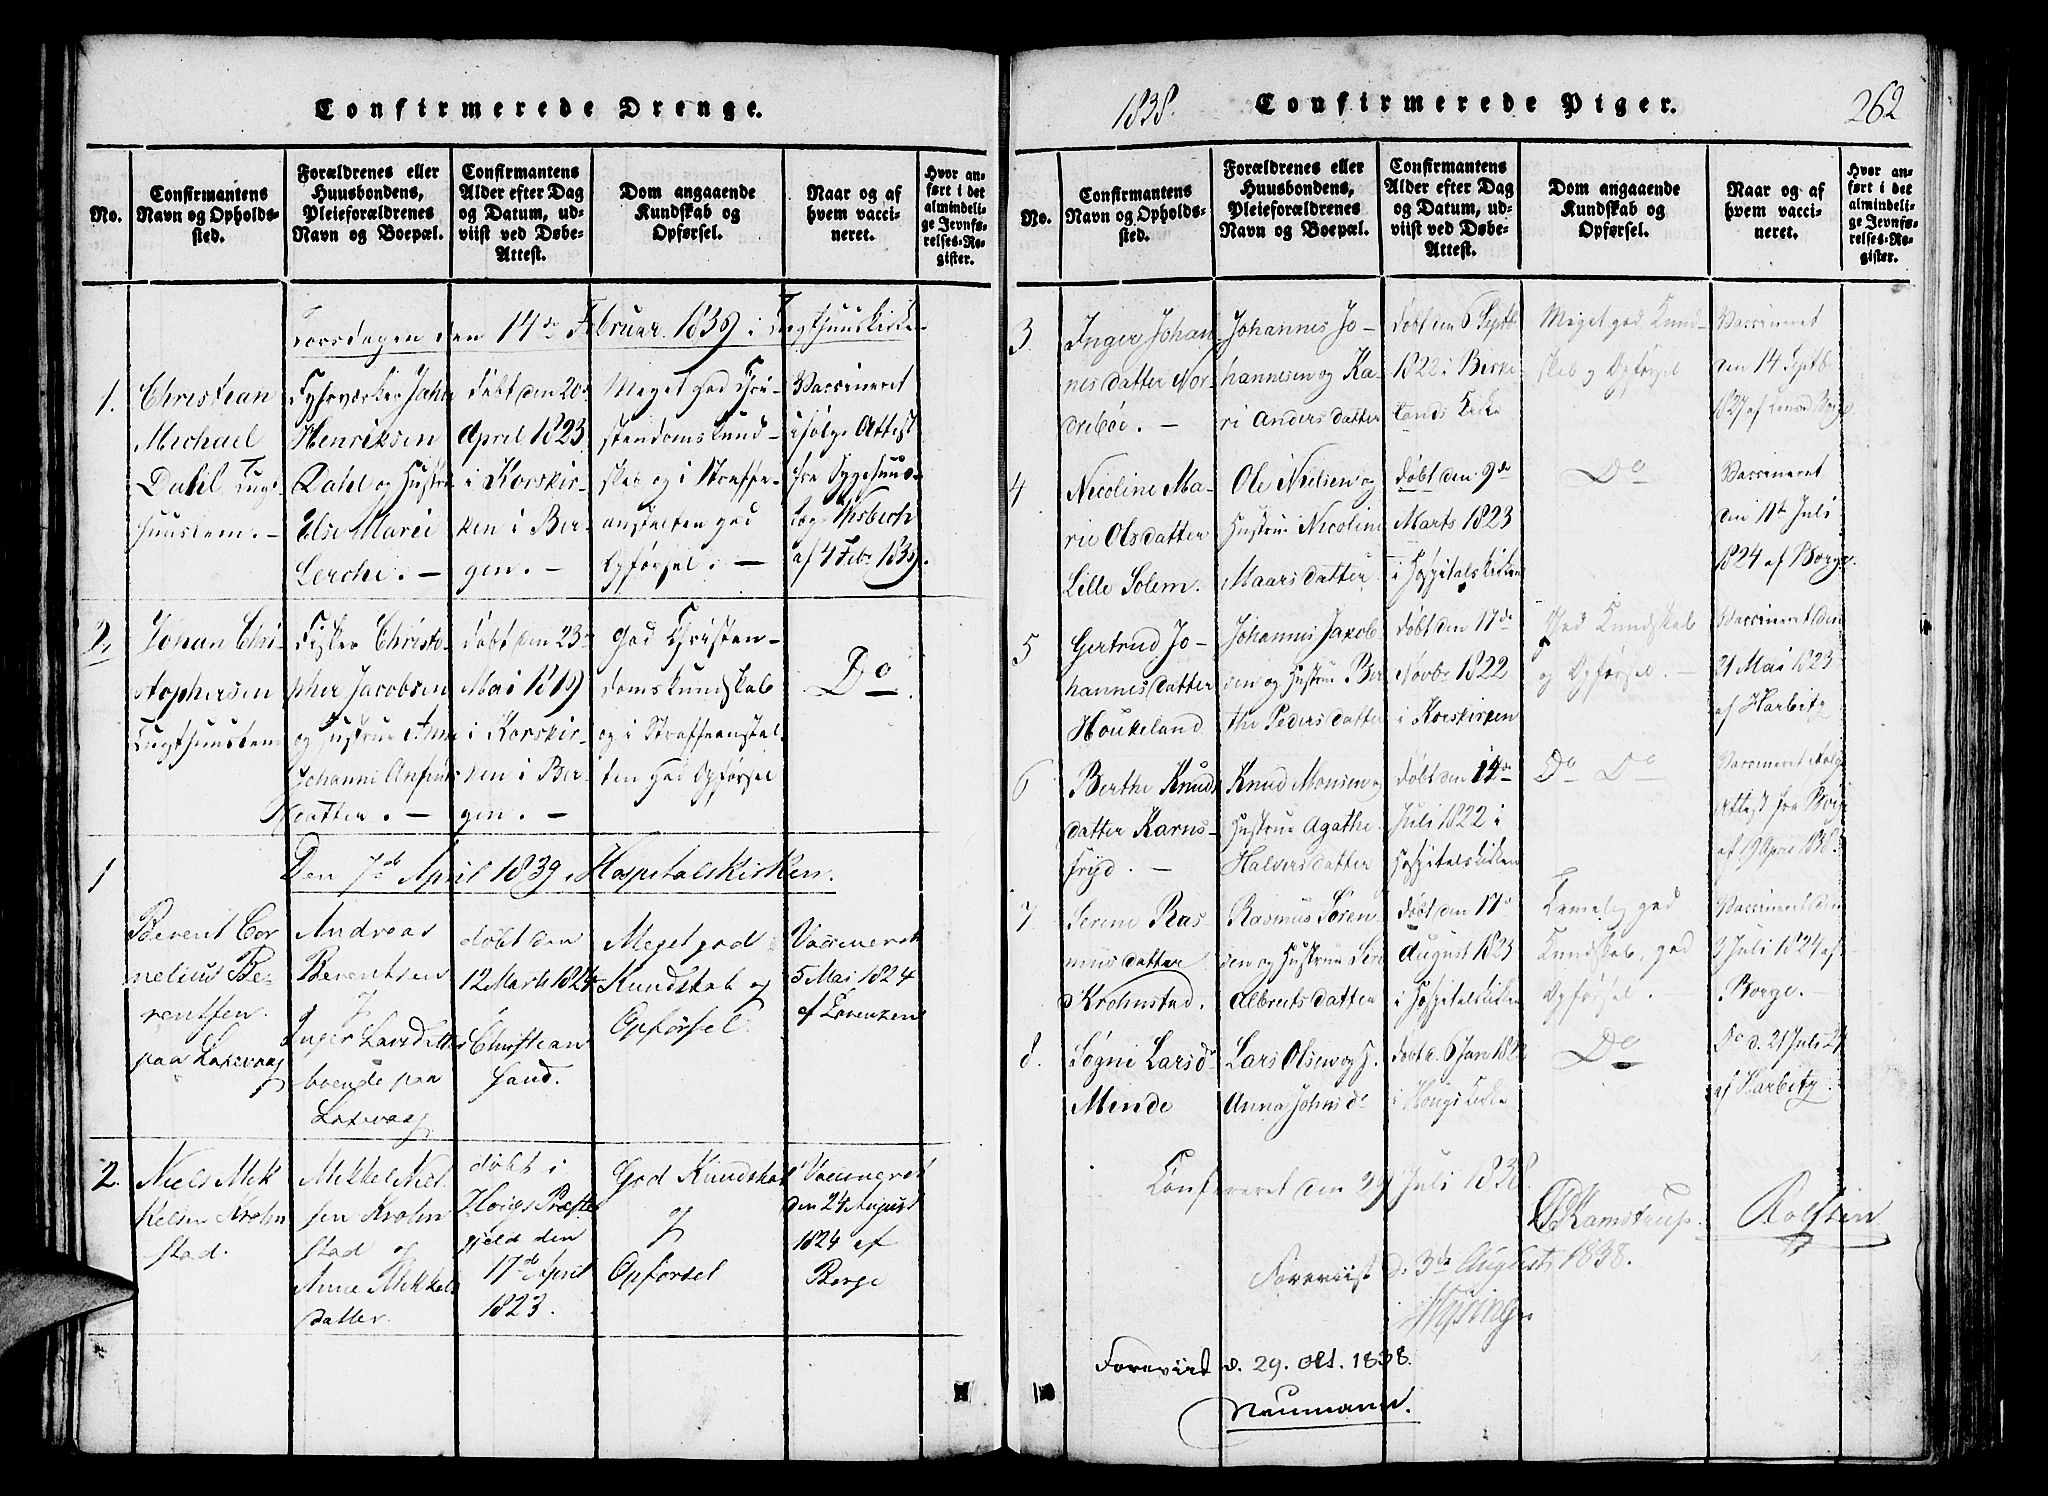 Confirmerede Drenge.
No.
Confirmantens
Navn og Opholds-
sted.
Forældrenes eller
Huusbondens,
Pleieforældrenes
Navn og Boepæl.
Confirmantens
Alder efter Dag
og Datum, ud-
viist ved Døbe-
Attest.
Dom angaaende
Kundskab og
Opførsel.
Naar og af
hvem vacci-
neret.
Hvor an-
ført i det
almindeli-
ge Jevnfø-
relses-Re-
gister.
Torsdagen den 14de Februar 1839 i Tugthuuskirke
1.
Christian
Michael
Dahl Tugt-
huuslem. -
Henriksen
Dahl og Hustru
Else Marie
Lerche. -
døbt den 20
April 1823
i Korskir-
ken i Ber-
gen. -
Meget god Chri-
stendomskund-
skab og i Straffe-
anstalten god
Opførsel. -
Vaccineret
ifølge Attest
fra
af 4 Febr 1839.
2
Johan Chri-
stophersen
Tugthuuslem
Fisker Christo-
pher Jacobsen
og Hustrue Anne
Johanne
datter. -
døbt den 23
Mai 1819
i Korskir-
ken i Ber-
gen. -
God Christen-
domskundskab
og i Straffeanstal-
ten god Opførsel
Do
1
Den 7de April 1839 i Hospitalskirken.
Berent Cor
nelius Be-
rentsen.
paa Laxevaag
Andreas
Berentsen
Inger
boende paa
Laxevaag
døbt den
12 Marts 1824
i Christian
sand.
Meget god
Kundskab og
Opførsel.
Vaccineret
5 Mai 1824
af Lorenzen
2.
Niels Mik
kelsen Krohn
stad.
Mikkel Niel
sen Krohn
stad og
Anne Mikkels
datter
døbt i
Hougs Præste
gjeld den
17de April
1823.
God Kundskab
og
Opførsel
Vaccineret
den 24 August
1824 af
Borge
1838.
Confirmerede Piger.
262
No.
Confirmantens
Navn og Opholds-
sted.
Forældrenes eller
Huusbondens,
Pleieforældrenes
Navn og Boepæl.
Confirmantens
Alder efter Dag
og Datum, ud-
viist ved Døbe-
Attest.
Dom angaaende
Kundskab og
Opførsel.
Naar og af
hvem vacci-
neret.
Hvor an-
ført i det
almindeli-
ge Jevnfø-
relses-Re-
gister.
3
Inger Johan
nesdatter Nor-
drebøe. -
Johannes Jo-
hannesen og Ka-
ri Andersdatter
døbt den 6 Septb
1822 i Birke
lands Kirke
Meget god Kund-
skab og Opførsel
Vaccineret
den 14 Septb
1827 af
4
Nicoline Ma-
rie Olsdatter
Lille Solem.
Ole Nielsen og
Hustrue Nicoline
Maarsdatter
døbt den 9de
Marts 1823
i Hospitalskirken
Do
Vaccineret
den 11te Juli
1824 af Borge.
5
Gertrud Jo-
hannesdatter
Houkeland
Johannes Jakob
sen og Hustrue Ber
the Pedersdatter
døbt den 17de
Novbr 1822
i Korskirken
God Kundskab
og Opførsel. -
Vaccineret den
21 Mai 1823
af Harbitz
6
Berthe Knuds
datter Karns-
fryd. -
Knud Monsen og
Hustrue Agathe
Halversdatter
døbt den 14de
Juli 1822 i
Hospitalskirken
Do Do
Attest fra Borge
af 9 April 1838
7
Serine Ras
musdatter
Krohnstad.
Rasmus Søren
sen og Hustrue
Albrutsdatter
døbt den 17
August 1823
i Hospitalskirken
Temelig god
Kundskab, god
Opførsel.
Vaccineret den
3 Juli 1824 af
Borge. -
8.
Søgni Larsd
Minde
Lars Olsen og H.
Anna Johnsd
døbt d. 6 Jan
i Hougs Kirke
Do
Do d. 21 Juli 24
af Harbitz
den 29 Juli 1838.
Kamstrup.
Foreviist d. 3de August 1838.
Foreviist d. 29. Okt. 1838.
Neumann.